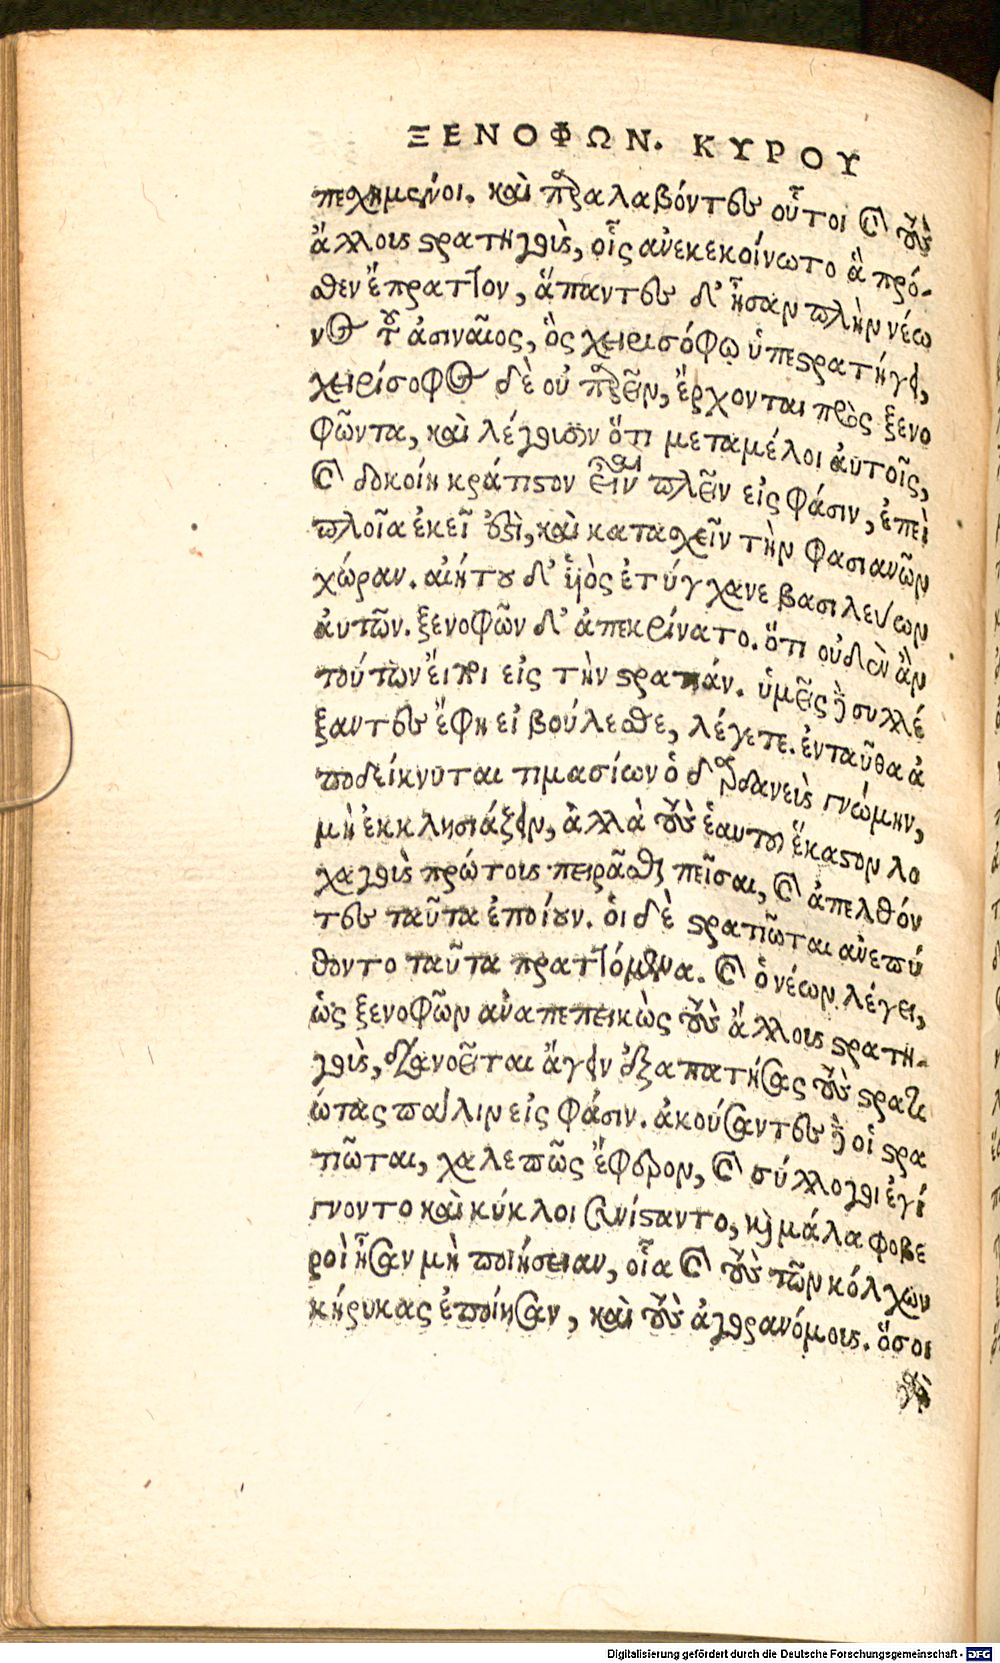 ΞΕΝΟΦΩΝ. ΚΥΡΟΥ
πεχημένοι. καὶ παραλαβόντες οὗτοι καὶ τοὺς
ἄλλους στρατηγοὺς, οἷς ἀνεκεκοίνωτο ἃ πρό-
σθεν ἔπραττον, ἅπαντες δ' ἦσαν πλὴν νέω
νος τοῦ ἀσιναῖος, ὃς χειρισόφῳ ὑπεστρατήγει,
χειρίσοφος δὲ οὐ παρῆν, ἔρχονται πρὸς ξενο
φῶντα, καὶ λέγουσιν ὅτι μεταμέλοι αὐτοῖς,
καὶ δοκοίη κράτιστον εἶναι πλεῖν εἰς φάσιν, ἐπεὶ
πλοῖα ἐκεῖ ἐστὶ, καὶ κατασχεῖν τὴν φασιανῶν
χώραν. αἰήτου δ' ὑιὸς ἐτύγχανε βασιλεύων
αὐτῶν. ξενοφῶν δ' ἀπεκρίνατο. ὅτι οὐδὲν ἂν
τούτων εἴποι εἰς τὴν στρατιάν. ὑμεῖς δὲ συλλέ
ξαντες ἔφη εἰ βούλεσθε, λέγετε. ἐνταῦθα ἀ
ποδείκνυται τιμασίων ὁ δαρδανεὺς γνώμην,
μὴ ἐκκλησιάζειν, ἀλλὰ τοὺς ἑαυτοῦ ἕκαστον λο
χαγοὺς πρώτους πειρᾶσθαι πεῖσαι, καὶ ἀπελθόν
τες ταῦτα ἐποίουν. οἱ δὲ στρατιῶται ἀνεπύ
θοντο ταῦτα πραττόμενα. καὶ ὁ νέων λέγει,
ὡς ξενοφῶν ἀναπεπεικὼς τοὺς ἄλλους στρατη-
γοὺς, διανοεῖται ἄγειν ἐξαπατήσας τοὺς στρατι
ώτας πάλιν εἰς φάσιν. ἀκούσαντες δὲ οἱ στρα
τιῶται, χαλεπῶς ἔφερον, καὶ σύλλογοι ἐγί
γνοντο καὶ κύκλοι συνίσταντο, καὶ μάλα φοβε
ροὶ ἦσαν μὴ ποιήσειαν, οἷα καὶ τοὺς τῶν κόλχων
κήρυκας ἐποίησαν, καὶ τοὺς ἀγορανόμους. ὅσοι